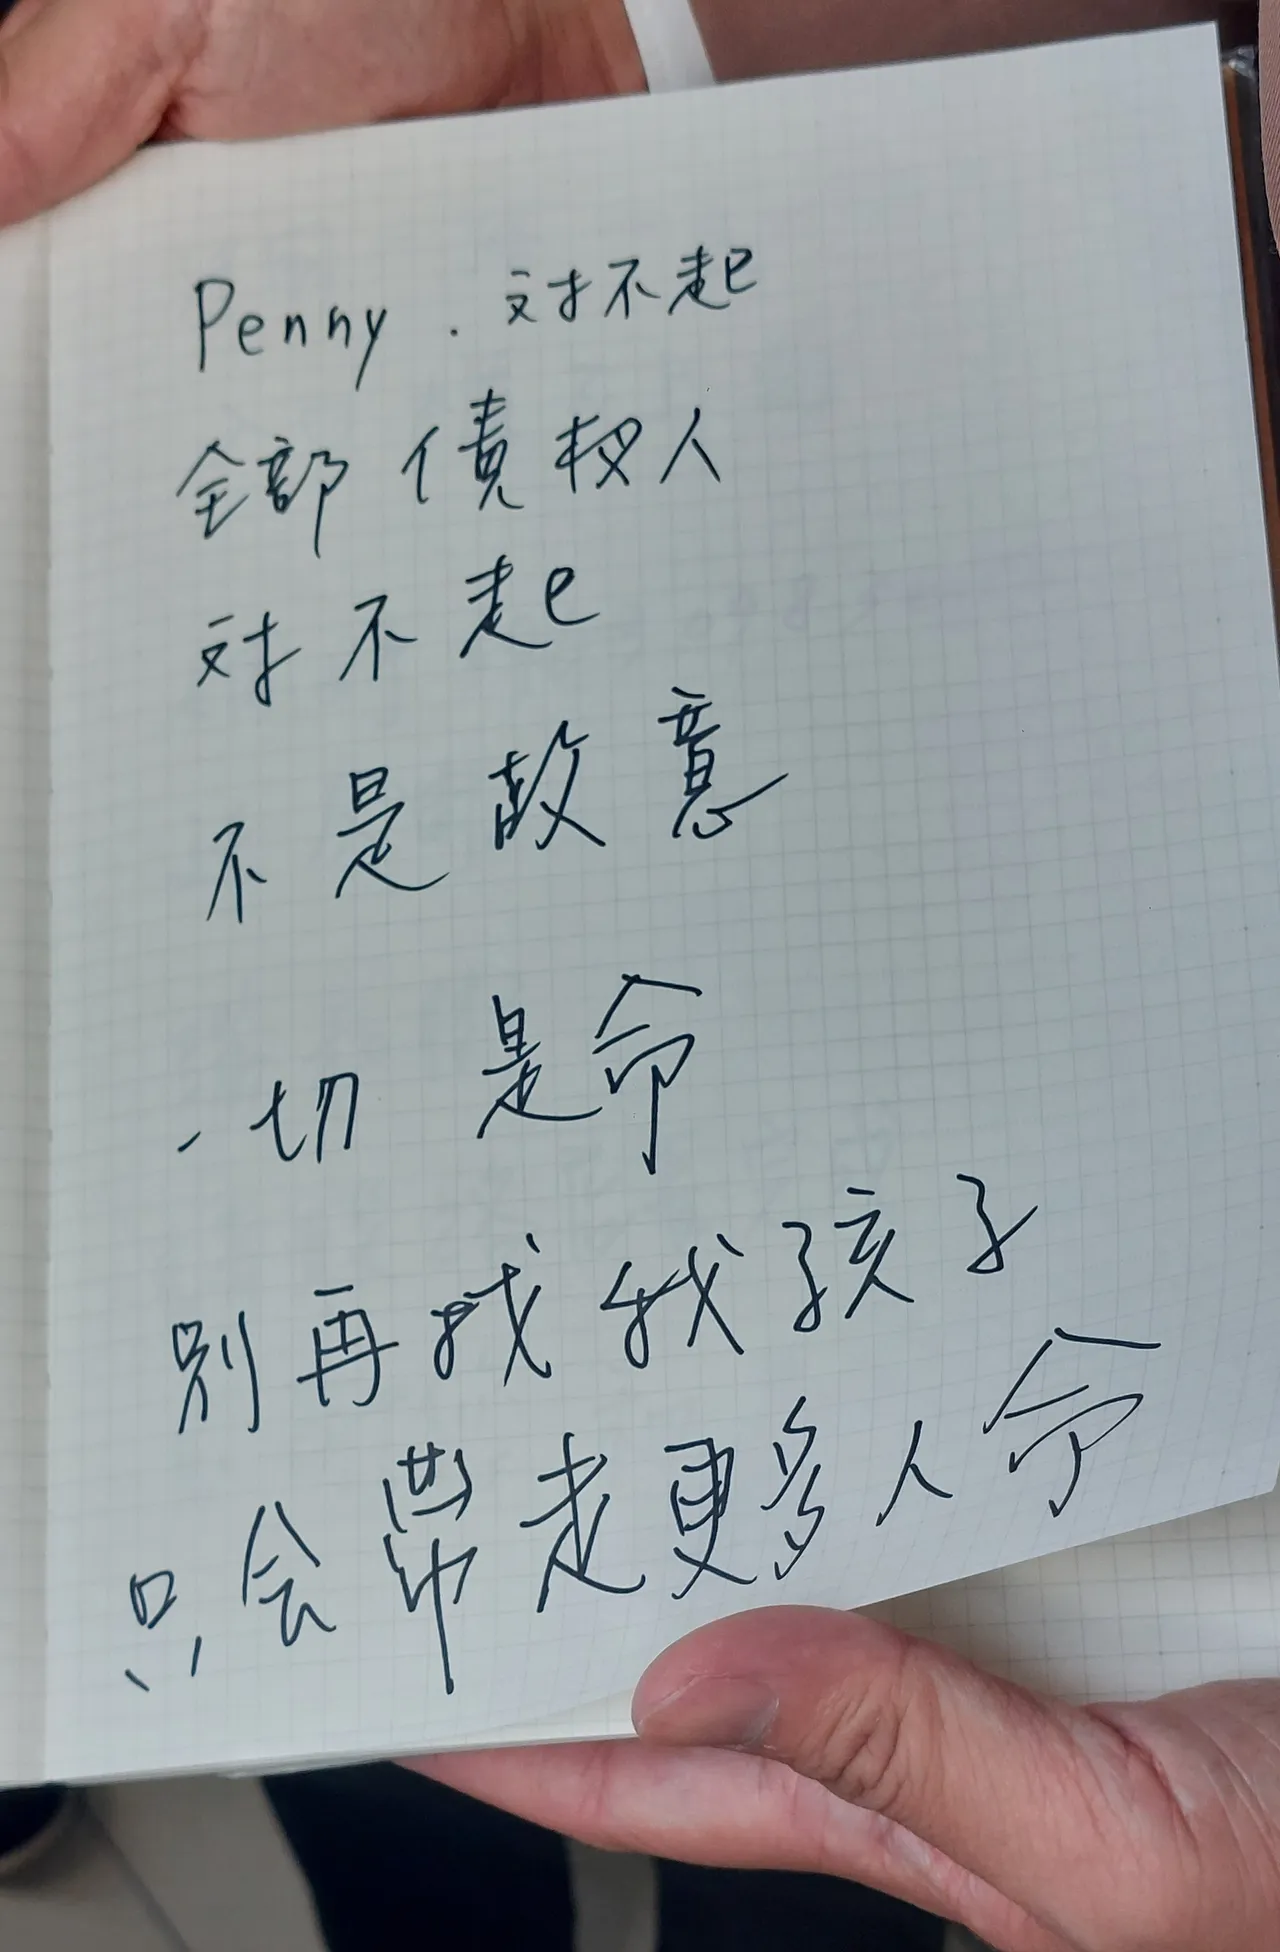 Penny . 对不起
全部債权人
对不起
不是故意
一切是命
別再找我孩子
只会帶走更多人命